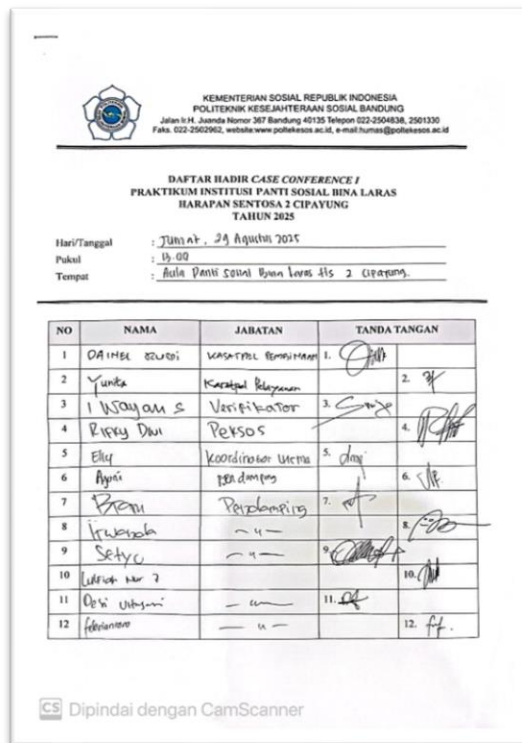 KEMENTERIAN SOSIAL REPUBLIK INDONESIA
POLITEKNIK KESEJAHTERAAN SOSIAL BANDUNG
Jalan Ir.H. Juanda Nomor 367 Bandung 40135 Telepon 022-2504838, 2501330
Faks. 022-2502962, website:www.poltekesos.ac.id, e-mail:humas@poltekesos.ac.id
DAFTAR HADIR CASE CONFERENCE I
PRAKTIKUM INSTITUSI PANTI SOSIAL BINA LARAS
HARAPAN SENTOSA 2 CIPAYUNG
TAHUN 2025
Hari/Tanggal : Jumat, 29 Agustus 2025
Pukul : 13.00
Tempat : Aula Panti Sosial Bina Laras Hs 2 Cipayung.
NO NAMA JABATAN TANDA TANGAN
1 1.
2 Yunita Kasatpel Pelayanan 2.
3 I Wayan S Verifikator 3.
4 Rifky Dwi Peksos 4.
5 Elly Koordinator 5.
6 pendamping 6.
7 Bram Pendamping 7.
8 Irwanda — u — 8.
9 Setyo — u — 9.
10 Nur 10.
11 Desi 11.
12 — u — 12.
CS Dipindai dengan CamScanner